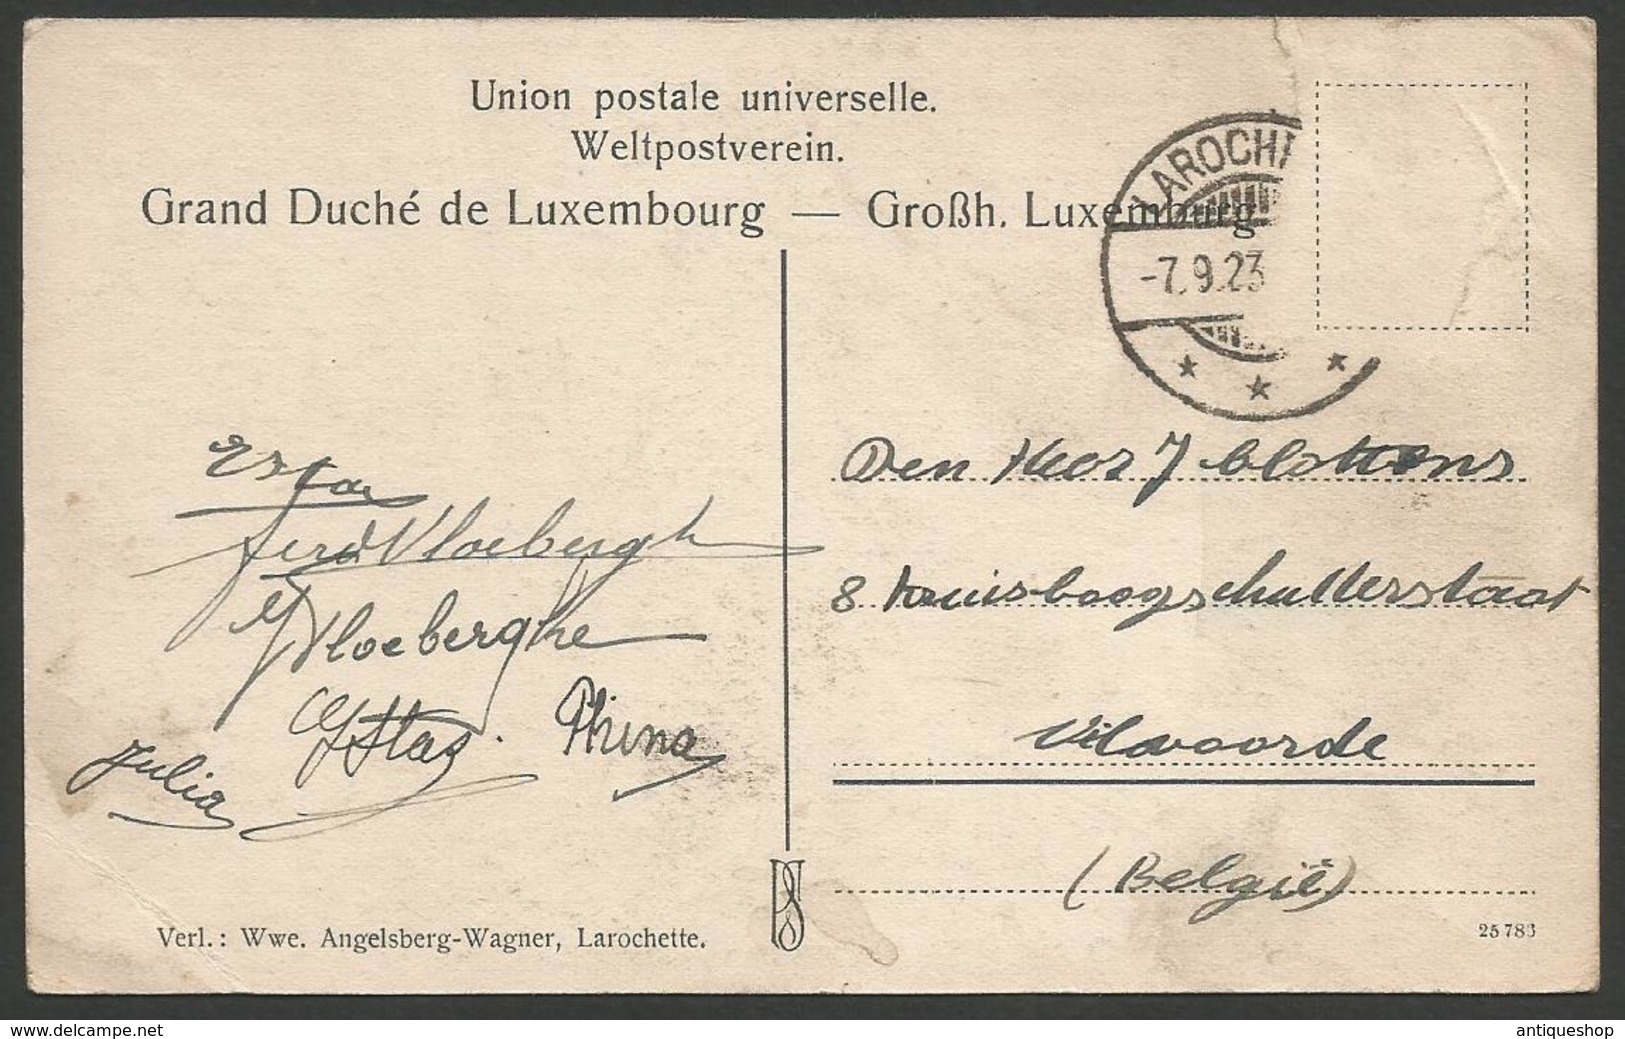 Union postale universelle.
Weltpostverein.
Grand Duché de Luxembourg — Großh. Luxemburg
LAROCH
-7.9.23
Ferd Vloebergh
Vloeberghe
Stas.
Phina
Julia
Den Heer J
8 Kruisboogschutterstaat
Vilvoorde
(België)
Verl.: Wwe. Angelsberg-Wagner, Larochette.
25783
www.delcampe.net
antiqueshop